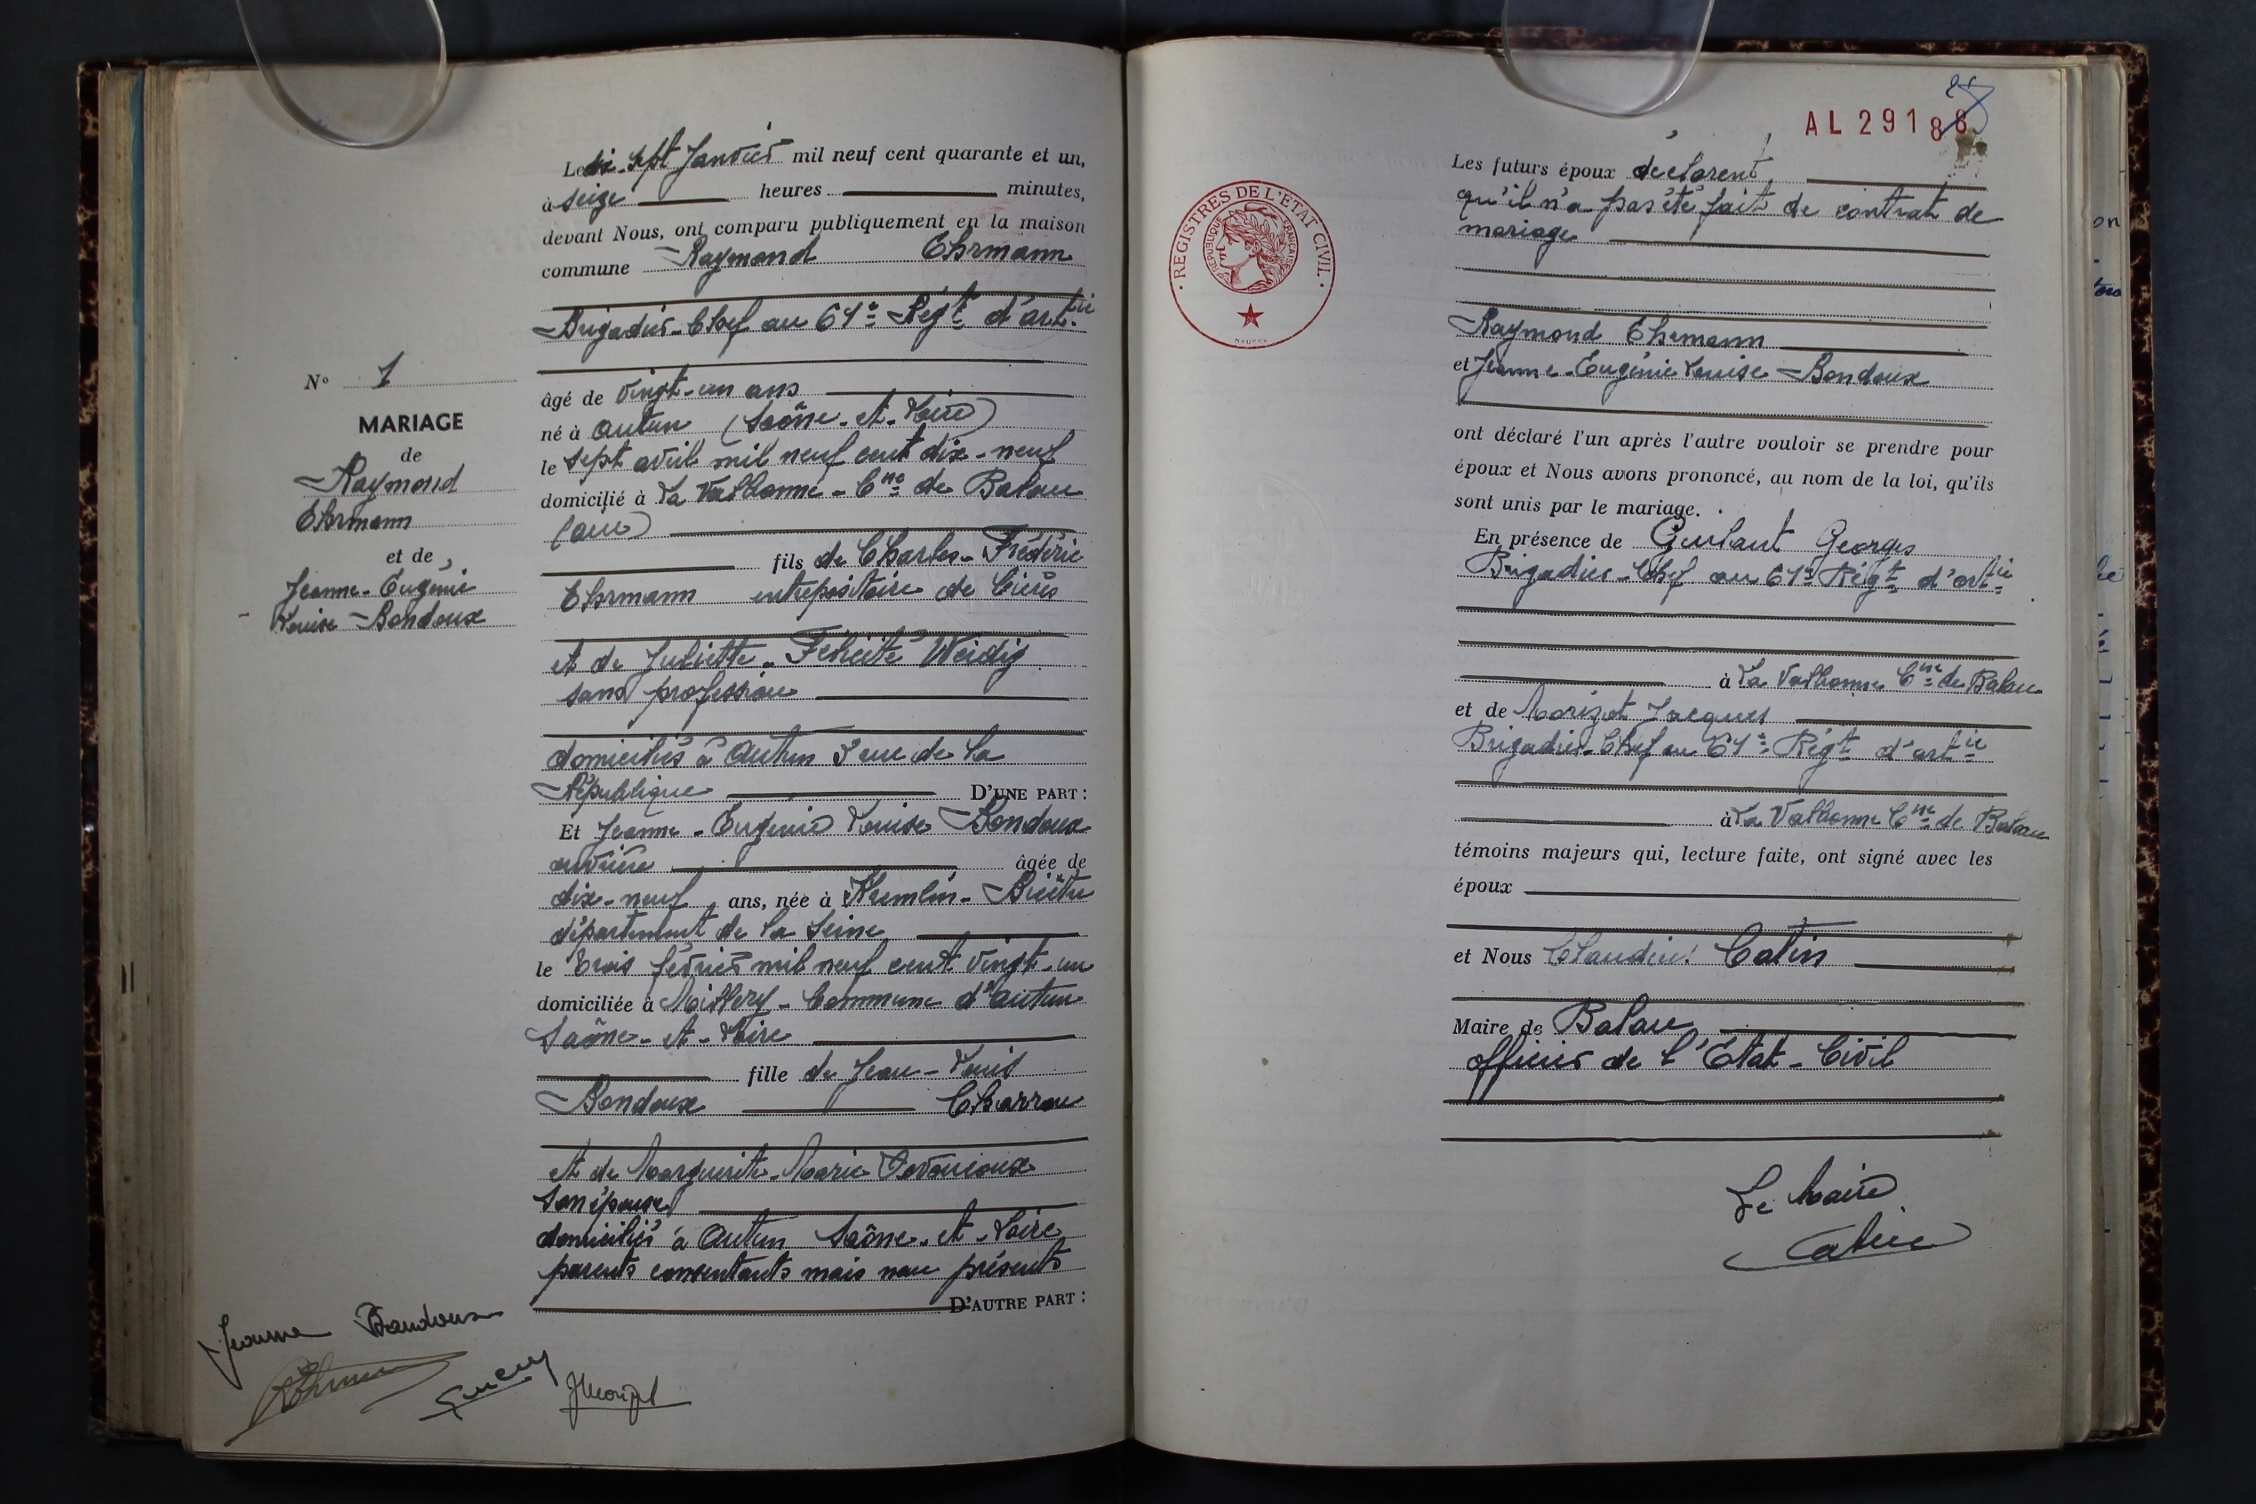 Le dix-sept Janvier mil neuf cent quarante et un,
à seize heures minutes,
devant Nous, ont comparu publiquement en la maison
commune Raymond Ehrmann
Brigadier-Chef au 61e Régt d'artie
âgé de vingt-un ans
né à Autun (Saône-et-Loire)
le sept avril mil neuf cent dix-neuf
domicilié à La Valbonne - Cne de Balan
(Ain)
fils de Charles-Frédéric
Ehrmann entrepositaire de bières
et de Juliette-Félicité Weidig
sans profession
domiciliés à Autun rue de la
République D'UNE PART :
Et Jeanne-Eugénie Louise Bondoux
ouvrière âgée de
dix-neuf ans, née à Kremlin-Bicêtre
département de la Seine
le trois février mil neuf cent vingt-un
domiciliée à Commune d'Autun
Saône-et-Loire
fille de Jean-Louis
Bondoux Charron
et de Marguerite-Marie
son épouse
domiciliés à Autun Saône-et-Loire
parents consentants mais non présents
D'AUTRE PART :
N° 1
MARIAGE
de
Raymond
Ehrmann
et de
Jeanne-Eugénie
Louise Bondoux
Jeanne Bondoux
JMorizot
AL 29188
REGISTRES DE L'ETAT CIVIL
REPUBLIQUE FRANÇAISE
Les futurs époux déclarent
qu'il n'a pas été fait de contrat de
mariage
Raymond Ehrmann
et Jeanne-Eugénie Louise Bondoux
ont déclaré l'un après l'autre vouloir se prendre pour
époux et Nous avons prononcé, au nom de la loi, qu'ils
sont unis par le mariage.
En présence de Georges
Brigadier-Chef au 61e Régt d'artie
à La Valbonne Cne de Balan
et de Morizot Jacques
Brigadier-Chef au 61e Régt d'artie
à La Valbonne Cne de Balan
témoins majeurs qui, lecture faite, ont signé avec les
époux
et Nous Claudius Catin
Maire de Balan
officier de l'Etat-Civil
Le Maire
Catin